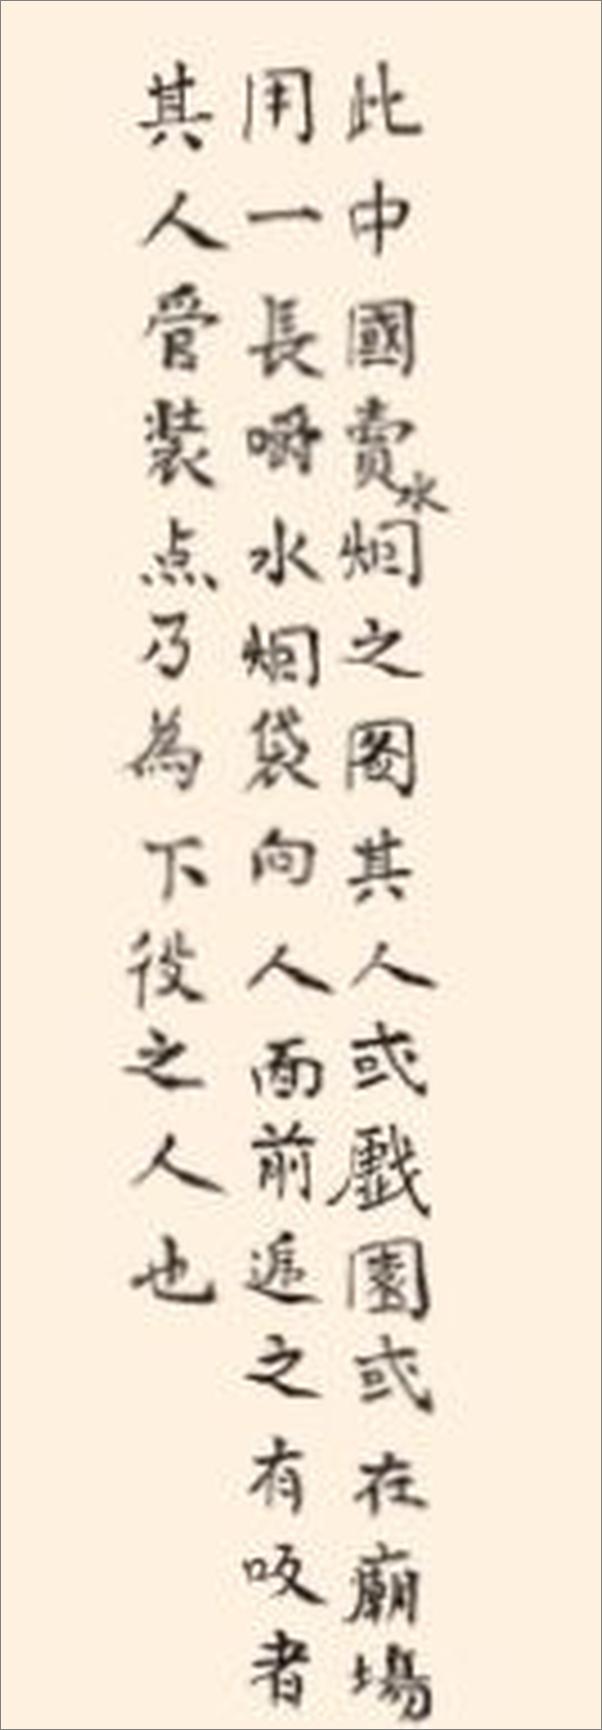 此中國賣水烟之圖其人或戲園或在廟場
用一長嚼水烟袋向人面前遞之有吸者
其人管装点乃為下役之人也